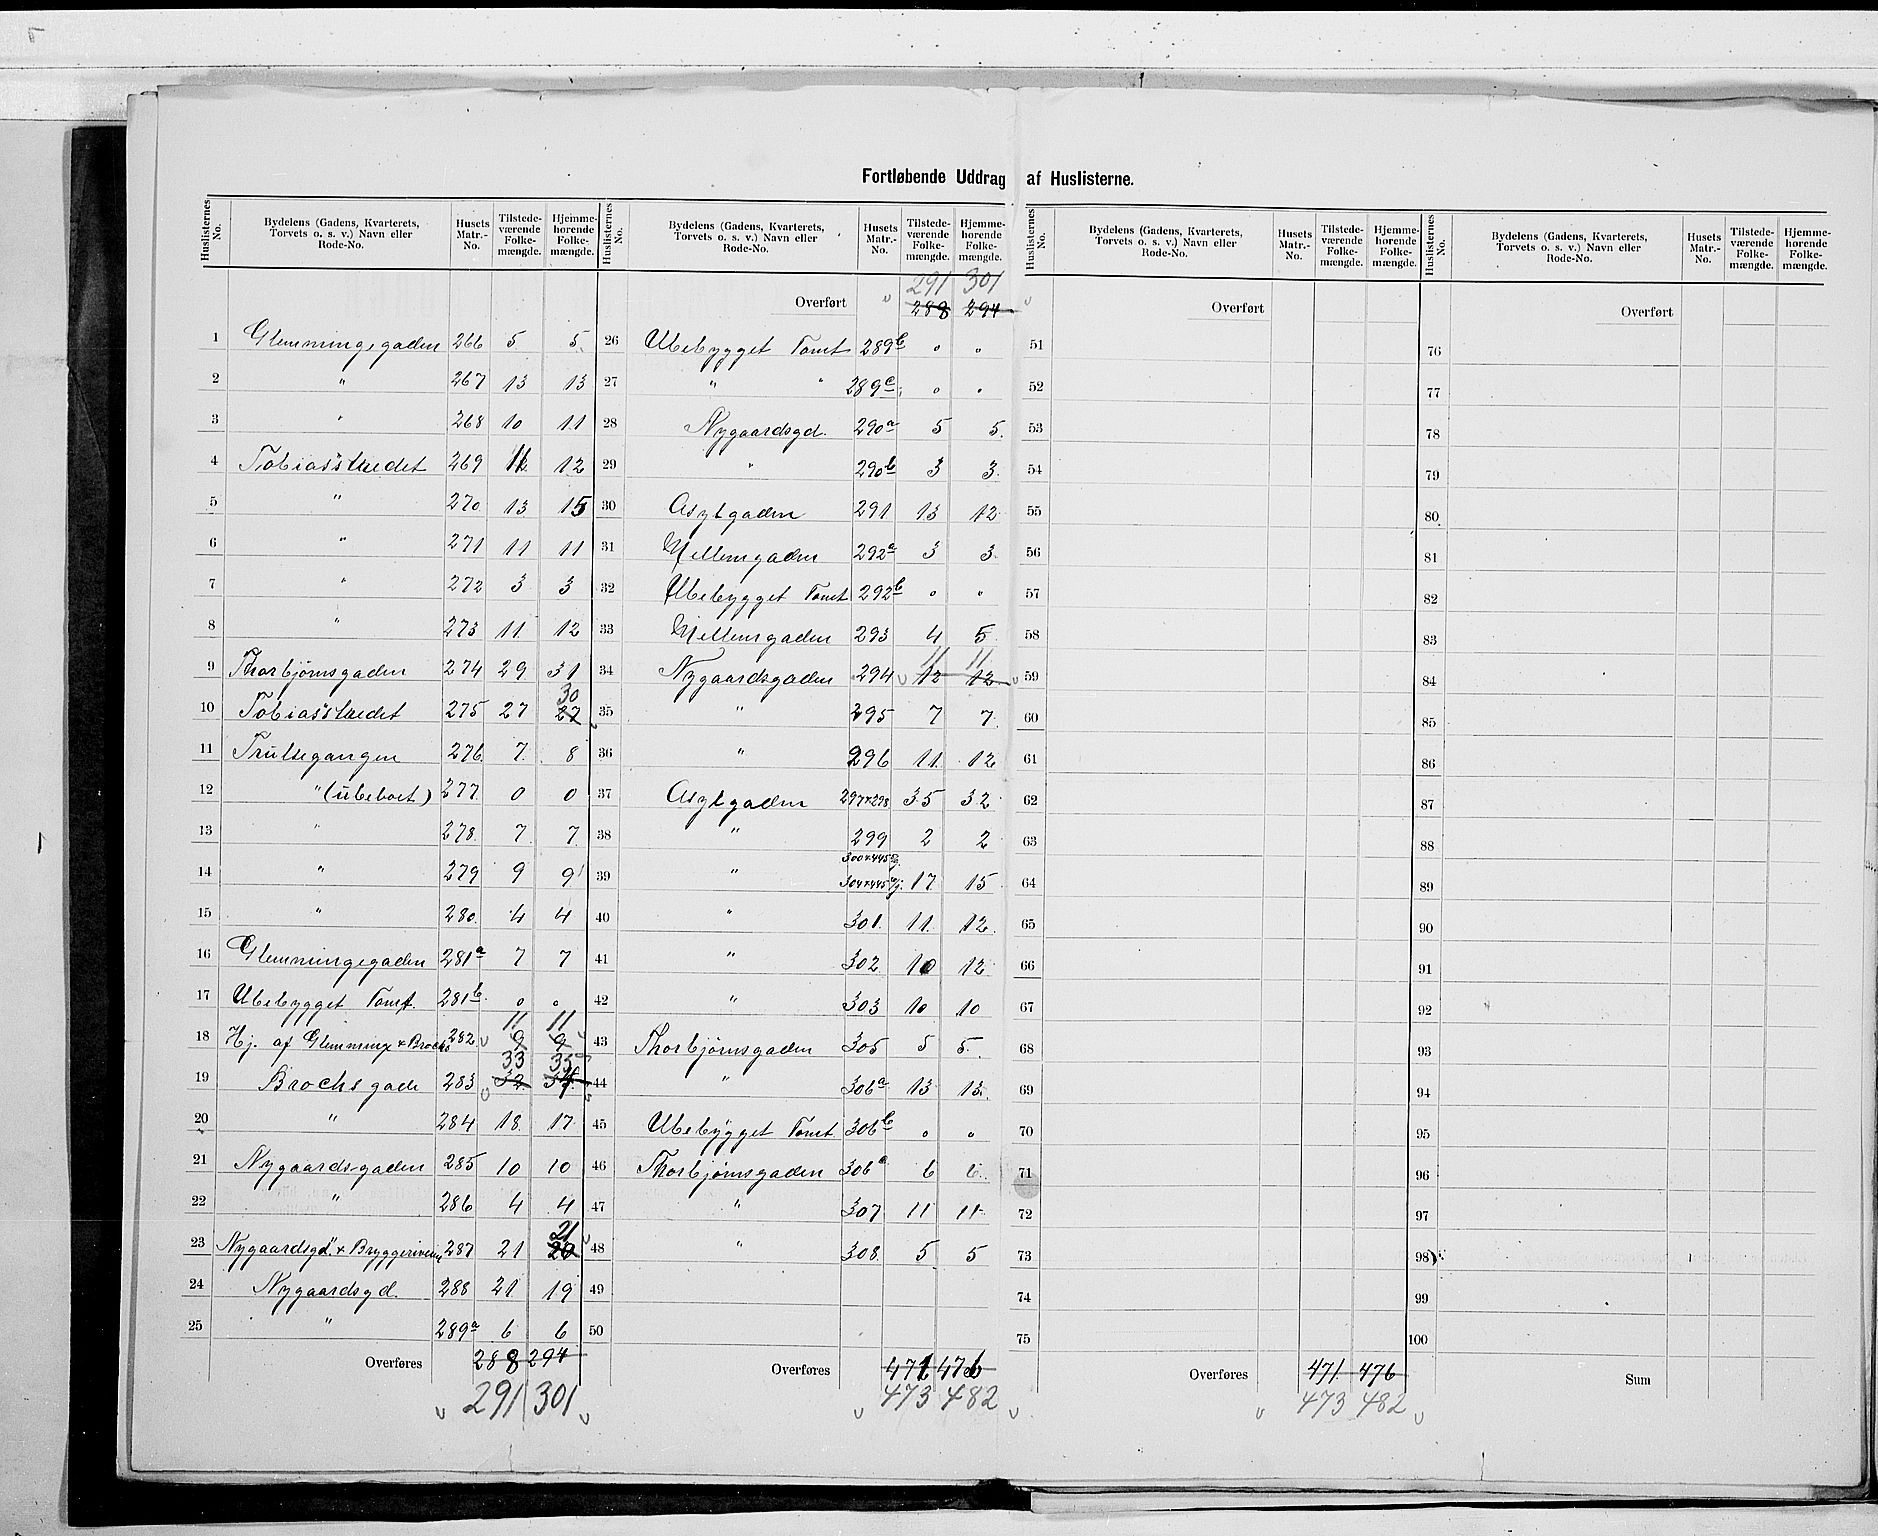 Fortløbende Uddrag af Huslisterne.
Huslisternes No. | Bydelens (Gadens, Kvarterets, Torvets o. s. v.) Navn eller Rode-No. | Husets Matr.-No. | Tilstedeværende Folkemængde. | Hjemmehorende Folkemængde.
1 Glemmingegaden 266 5 5
2 " 267 13 13
3 " 268 10 11
4 Tobiasstredet 269 11 12
5 " 270 13 15
6 " 271 11 11
7 " 272 3 3
8 " 273 11 12
9 Thorbjørnsgaden 274 29 31
10 Tobiasstredet 275 27 27 30
11 Trultsegangen 276 7 8
12 " (ubeboet) 277 0 0
13 " 278 7 7
14 " 279 9 9
15 " 280 4 4
16 Glemmingegaden 281a 7 7
17 Ubebygget Tomt. 281b 0 0
18 Hj. af Glemminge & Brochs 282 9 9 11 11
19 Brochs gade 283 32 34 33 35
20 " 284 18 17
21 Nygaards-gaden 285 10 10
22 " 286 4 4
23 Nygaardsgd. & Bryggeriveien 287 21 20 21
24 Nygaardsgd. 288 21 19
25 " 289a 6 6
Overføres 288 294
291 301
Huslisternes No. | Bydelens (Gadens, Kvarterets, Torvets o. s. v.) Navn eller Rode-No. | Husets Matr.-No. | Tilstedeværende Folkemængde. | Hjemmehorende Folkemængde.
291 301
Overført " 288 294
26 Ubebygget Tomt 289b 0 0
27 " " 289c 0 0
28 Nygaardsgd. 290a 5 5
29 " 290b 3 3
30 Asylgaden 291 13 12
31 Mellemgaden 292a 3 3
32 Ubebygget Tomt 292b 0 0
33 Mellemgaden 293 4 5
34 Nygaardsgaden 294 12 12 11 11
35 " 295 7 7
36 " 296 11 12
37 Asylgaden 297 & 298 35 32
38 " 299 2 2
39 " 300 & 445 304 & 445 17 15
40 " 301 11 12
41 " 302 10 12
42 " 303 10 10
43 Thorbjørnsgaden 305 5 5
44 " 306a 13 13
45 Ubebygget Tomt 306b 0 0
46 Thorbjørnsgaden 306c 6 6
47 " 307 11 11
48 " 308 5 5
49
50
Overføres 471 476
473 482
Huslisternes No. | Bydelens (Gadens, Kvarterets, Torvets o. s. v.) Navn eller Rode-No. | Husets Matr.-No. | Tilstedeværende Folkemængde. | Hjemmehorende Folkemængde.
Overført
51
52
53
54
55
56
57
58
59
60
61
62
63
64
65
66
67
68
69
70
71
72
73
74
75
Overføres 471 476
473 482
Huslisternes No. | Bydelens (Gadens, Kvarterets, Torvets o. s. v.) Navn eller Rode-No. | Husets Matr.-No. | Tilstedeværende Folkemængde. | Hjemmehorende Folkemængde.
Overført
76
77
78
79
80
81
82
83
84
85
86
87
88
89
90
91
92
93
94
95
96
97
98
99
100
Sum